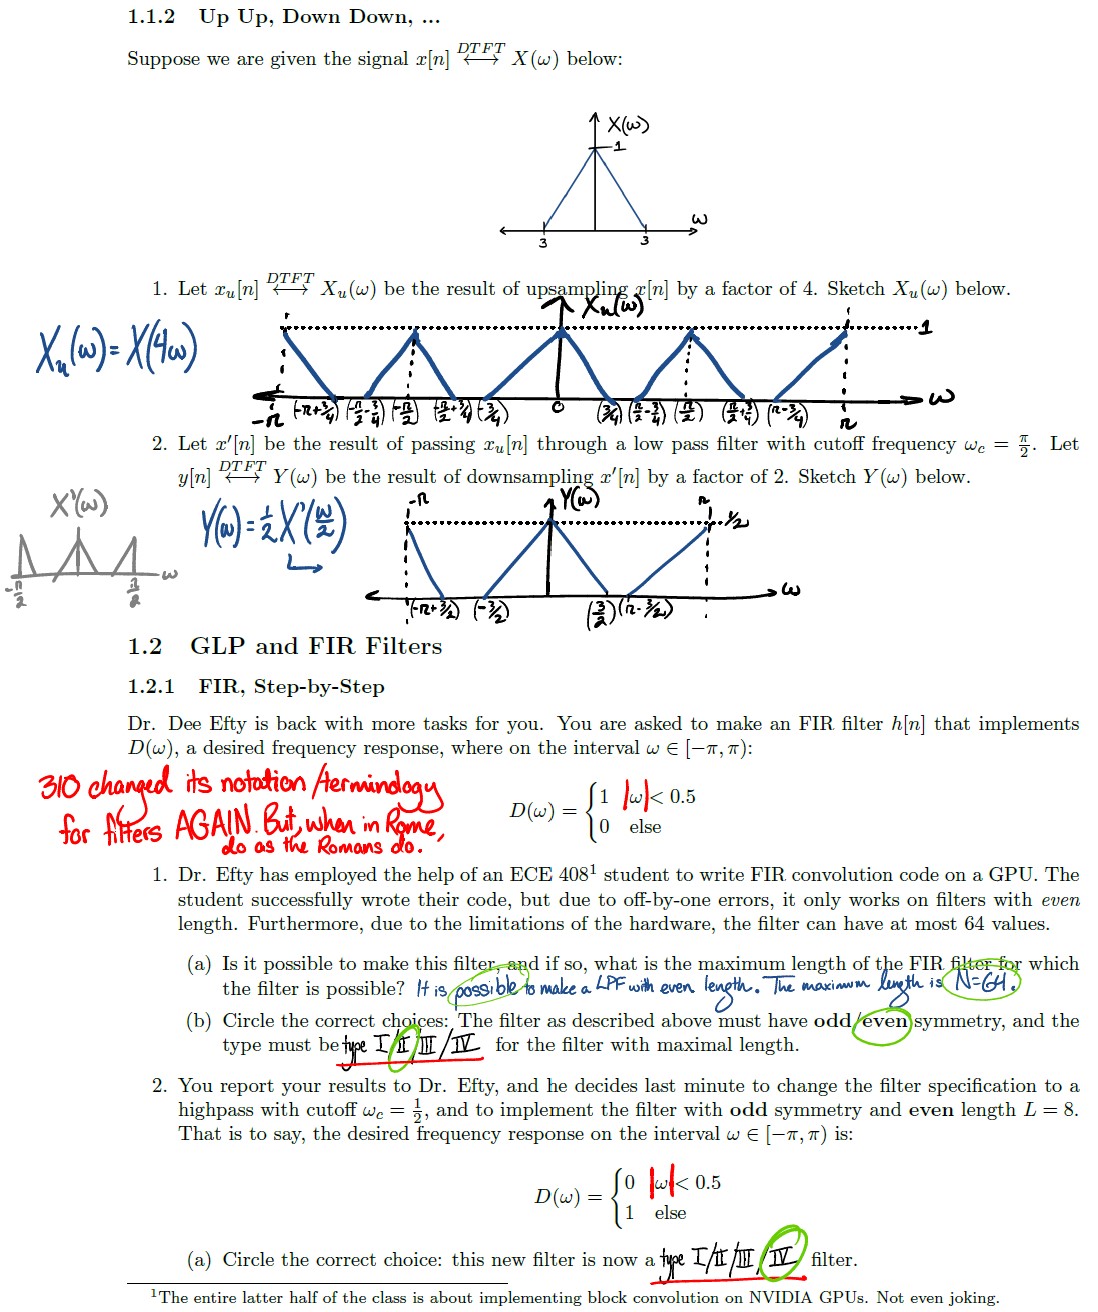 1.1.2 Up Up, Down Down, ...
Suppose we are given the signal x[n] DTFT⟷ X(ω) below:
X(ω)
1
ω
3 3
1. Let xᵤ[n] DTFT⟷ Xᵤ(ω) be the result of upsampling x[n] by a factor of 4. Sketch Xᵤ(ω) below.
Xᵤ(ω)
1
Xᵤ(ω)=X(4ω)
ω
-π (-π+3/4) (-π/2-3/4) (-π/2) (-π/2+3/4) (-3/4) 0 (3/4) (π/2-3/4) (π/2) (π/2+3/4) (π-3/4) π
2. Let x′[n] be the result of passing xᵤ[n] through a low pass filter with cutoff frequency ω_c = π/2. Let
y[n] DTFT⟷ Y(ω) be the result of downsampling x′[n] by a factor of 2. Sketch Y(ω) below.
X'(ω)
-π Y(ω) π
Y(ω)=1/2 X'(ω/2)
1/2
ω
-π/2 π/2
ω
(-π+3/2) (-3/2) (3/2) (π-3/2)
1.2 GLP and FIR Filters
1.2.1 FIR, Step-by-Step
Dr. Dee Efty is back with more tasks for you. You are asked to make an FIR filter h[n] that implements
D(ω), a desired frequency response, where on the interval ω ∈ [−π, π):
310 changed its notation/terminology
for filters AGAIN. But, when in Rome,
do as the Romans do.
D(ω) = {1 |ω|< 0.5
0 else
1. Dr. Efty has employed the help of an ECE 408¹ student to write FIR convolution code on a GPU. The
student successfully wrote their code, but due to off-by-one errors, it only works on filters with even
length. Furthermore, due to the limitations of the hardware, the filter can have at most 64 values.
(a) Is it possible to make this filter, and if so, what is the maximum length of the FIR filter for which
the filter is possible? It is possible to make a LPF with even length. The maximum length is N=64.
(b) Circle the correct choices: The filter as described above must have odd/even symmetry, and the
type must be type I/II/III/IV for the filter with maximal length.
2. You report your results to Dr. Efty, and he decides last minute to change the filter specification to a
highpass with cutoff ω_c = 1/2, and to implement the filter with odd symmetry and even length L = 8.
That is to say, the desired frequency response on the interval ω ∈ [−π, π) is:
D(ω) = {0 |ω|< 0.5
1 else
(a) Circle the correct choice: this new filter is now a type I/II/III/IV filter.
¹The entire latter half of the class is about implementing block convolution on NVIDIA GPUs. Not even joking.